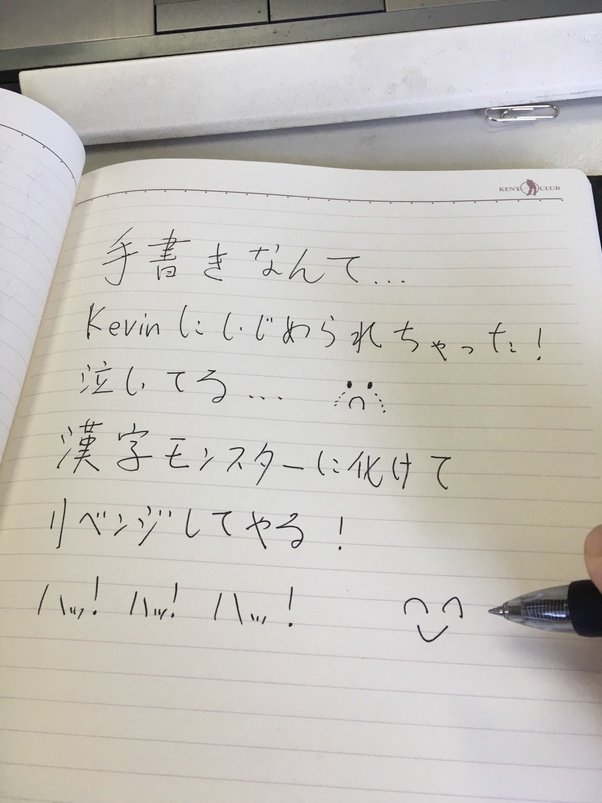 KEN'S CLUB
手書きなんて...
Kevinにいじめられちゃった!
泣いてる...
漢字モンスターに化けて
リベンジしてやる!
ハッ! ハッ! ハッ!